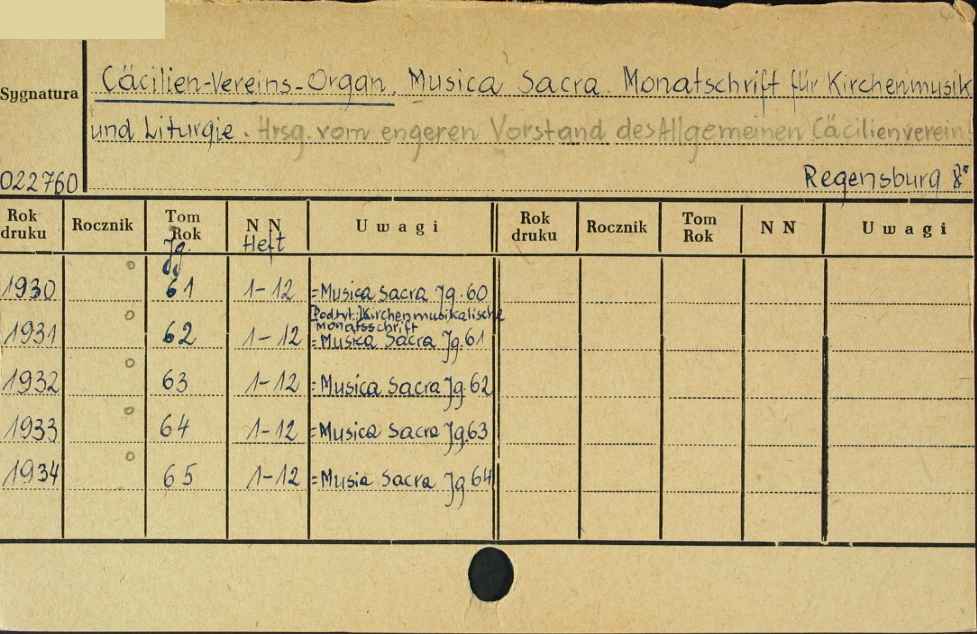 Sygnatura
Cäcilien-Vereins-Organ. Musica Sacra. Monatschrift für Kirchenmusik
und Liturgie. Hrsg. vom engeren Vorstand des Allgemeinen Cäcilienverein
022760
Regensburg 8°
Rok druku Rocznik Tom Rok N N U w a g i Rok druku Rocznik Tom Rok N N U w a g i
Jg. Heft
1930 61 1-12 =Musica Sacra Jg. 60
[Podtyt.:] Kirchenmusikalische
Monatsschrift
1931 62 1-12 =Musica Sacra Jg. 61
1932 63 1-12 =Musica Sacra Jg. 62
1933 64 1-12 =Musica Sacra Jg. 63
1934 65 1-12 =Musia Sacra Jg 64